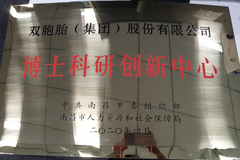 双胞胎（集团）股份有限公司
博士科研创新中心
中共南昌市委组织部
南昌市人力资源和社会保障局
二〇二〇年四月